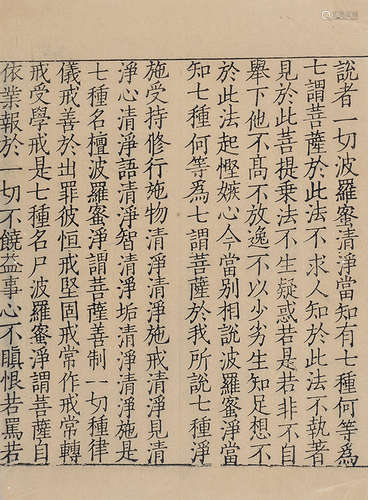 說者一切波羅蜜清淨當知有七種何等為
七謂菩薩於此法不求人知於此法不執著
見於此菩提乗法不生疑惑若是若非不自
舉下他不髙不放逸不以少劣生知足想不
於此法起慳嫉心今當别相說波羅蜜淨當
知七種何等為七謂菩薩於我所說七種淨
施受持修行施物清淨清淨施戒清淨見清
淨心清淨語清淨智清淨垢清淨清淨施是
七種名檀波羅蜜淨謂菩薩善制一切種律
儀戒善於出罪彼恒戒堅固戒常作戒常轉
戒受學戒是七種名尸波羅蜜淨謂菩薩自
依業報於一切不饒益事心不瞋恨若罵若